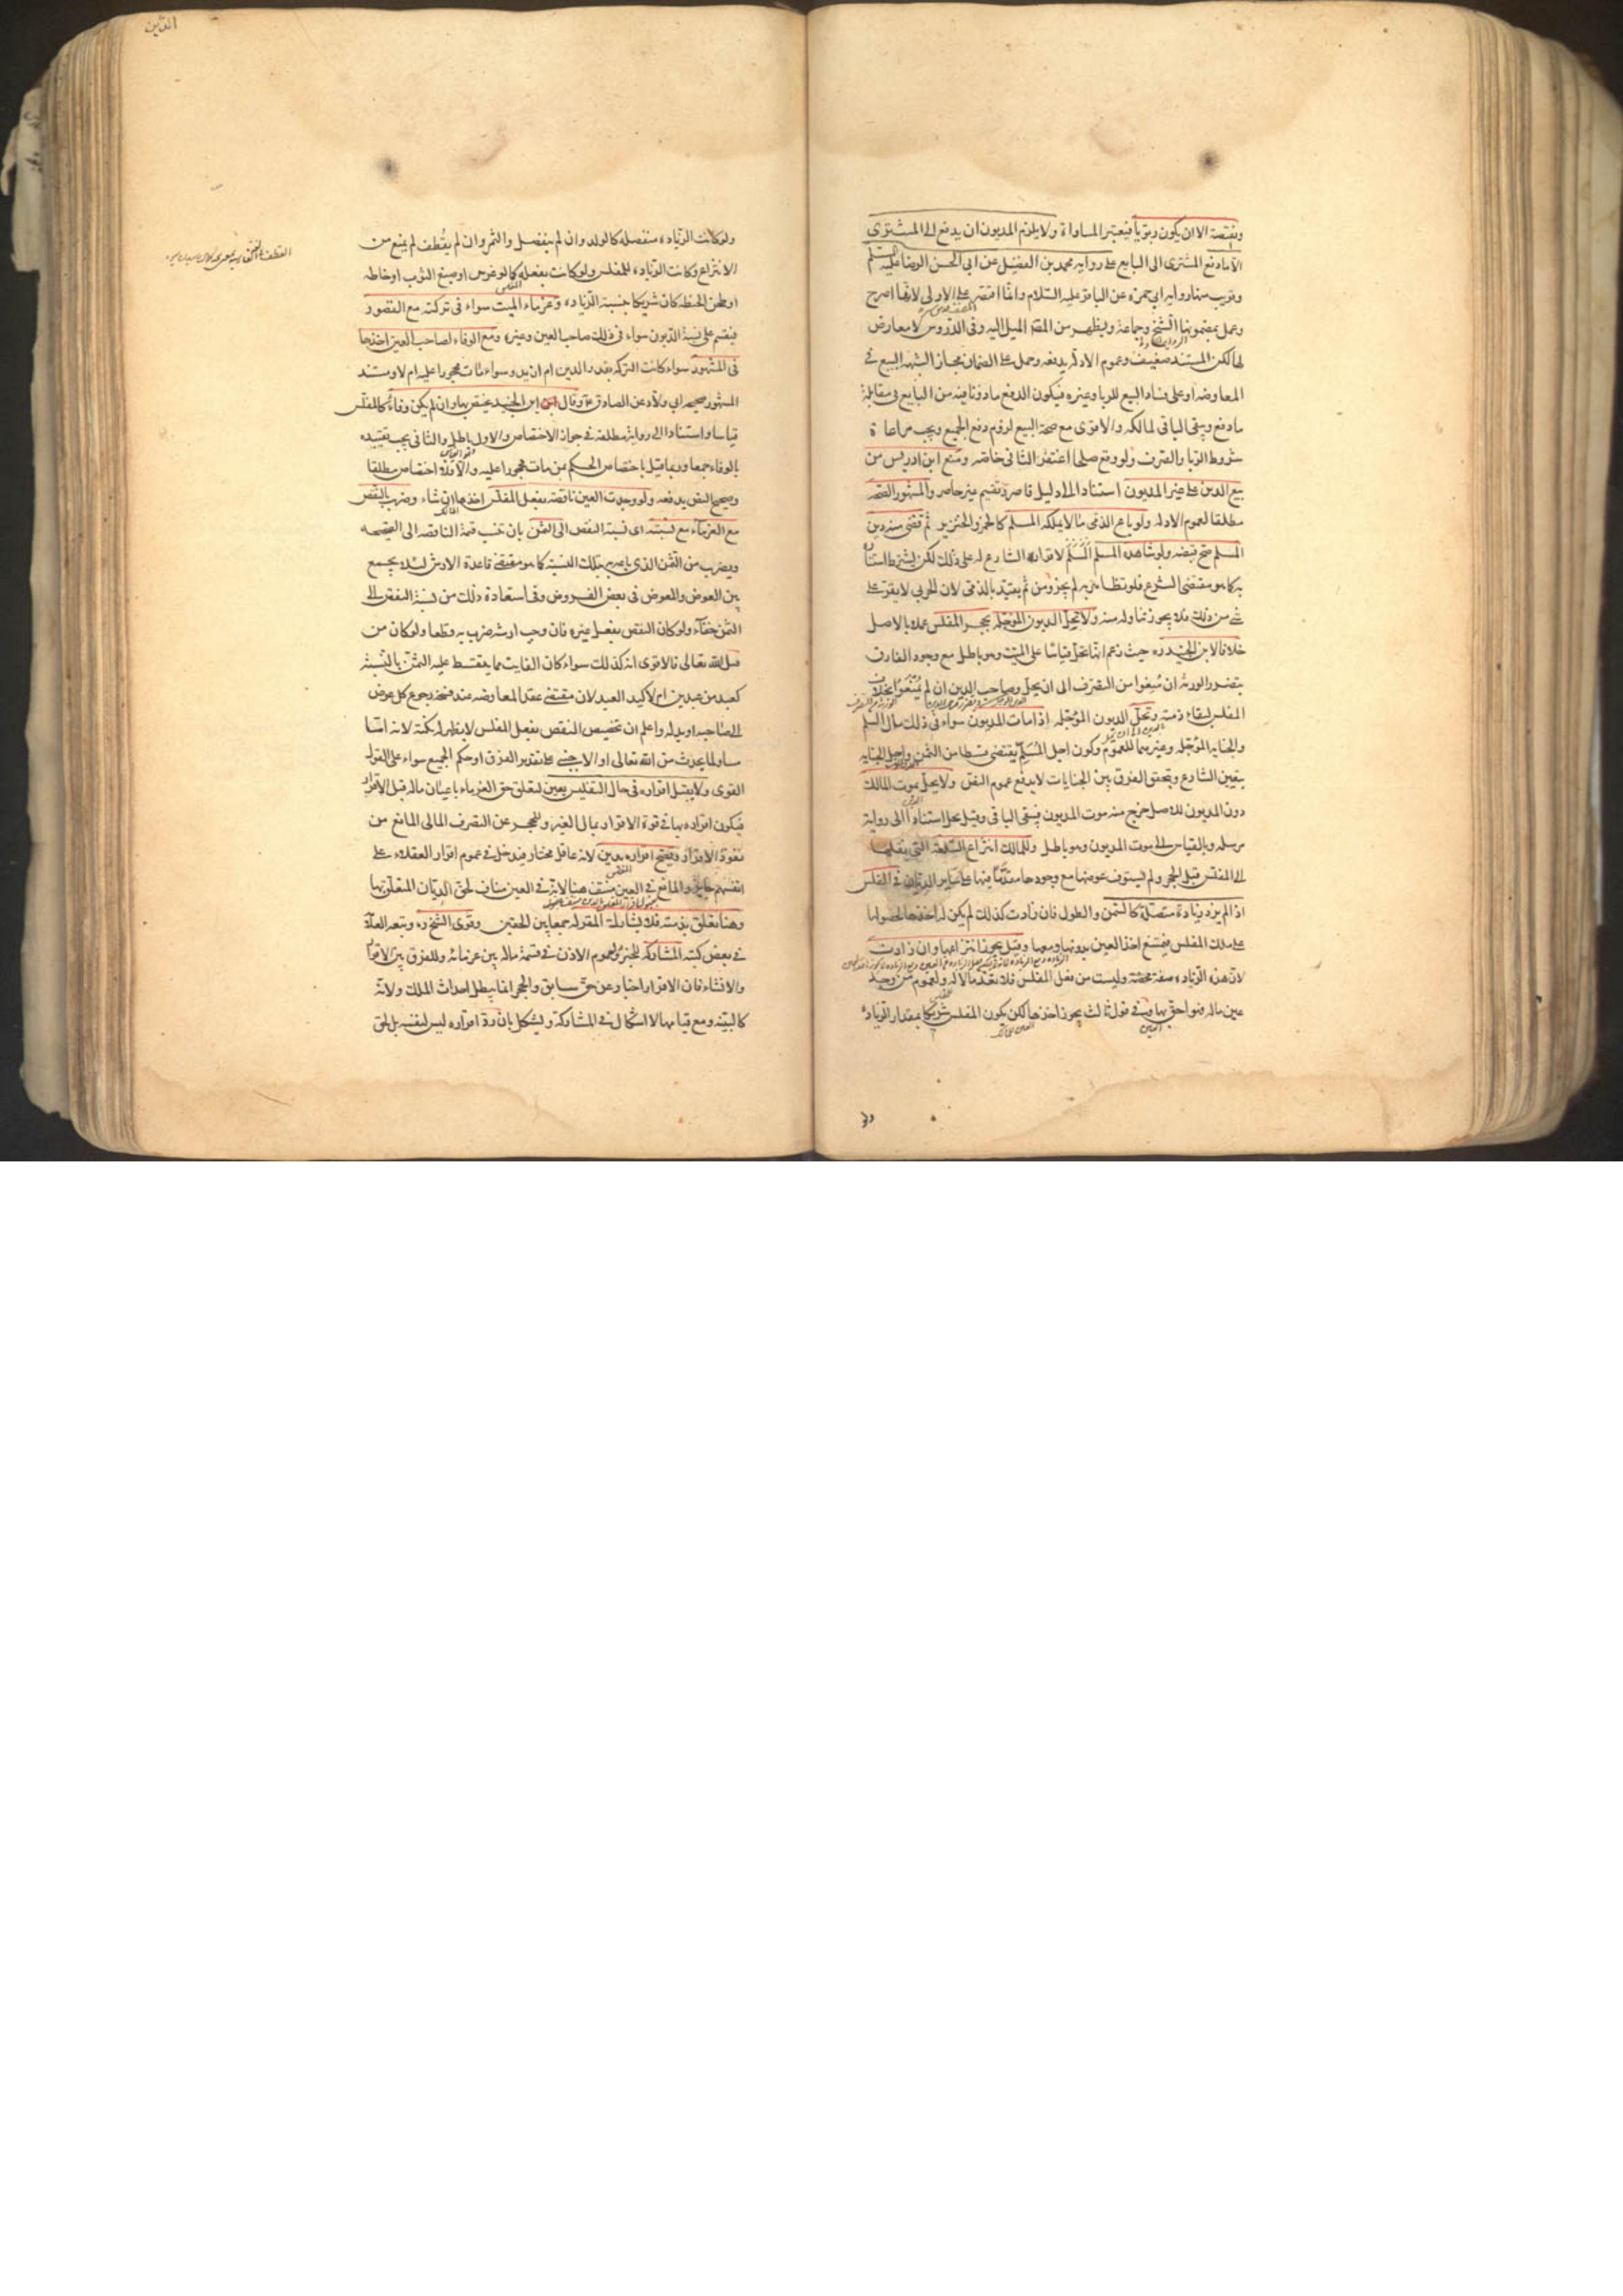 ونقيصة الا ان يكون ربويا فيعتبر المساواة ولا يلزم المديون ان يدفع الى المشترى
الا ما دفع المشترى الى البايع على رواية محمد بن الفضيل عن ابى الحسن الرضا عليه السلم
وقريب منها رواية ابى حمزة عن الباقر عليه السلام وانما اقتصر على الاولى لانها اصرح
وعمل بمضمونها الشيخ وجماعة ويظهر من المصَ الميل اليه وفى الدروس لا معارض
لها لكن المستند ضعيف وعموم الادلة يدفعه وحمل على الضمان مجازا لشبهه البيع فى
المعاوضة او على فساد البيع للربا وغيره فيكون الدفع ماذونا فيه من البايع فى مقابلة
ما دفع ويبقى الباقى لمالكه والاقوى مع صحة البيع لزوم دفع الجميع ويجب مراعاة
شروط الربا والصرف ولو وقع صلحا اغتفر الثانى خاصة ومنع ابن ادريس من
بيع الدين على غير المديون استنادا الى دليل قاصر وتقسيم غير حاصر والمشهور الصحة
مطلقا لعموم الادلة ولو باع الذمى ما لا يملكه المسلم كالخمر والخنزير ثم قضى منه دين
المسلم صح قبضه ولو شاهده المسلم لاقرار الشارع له على ذلك لكن يشترط استتاره
به كما هو مقتضى الشرع فلو تظاهر به لم يجز ومن ثم يقيد بالذمى لان الحربى لا يقر على
شى من ذلك فلا يجوز تناوله منه ولا تحل الديون المؤجلة بحجر المفلس عملا بالاصل
خلافا لابن الجنيد ره حيث زعم انها تحل قياسا على الميت وهو باطل مع وجود الفارق
بتضرر الورثة ان منعوا من التصرف الى ان يحل وصاحب الدين ان لم يمنعوا بخلاف
المفلس لبقاء ذمته وتحل الديون المؤجلة اذا مات المديون سواء فى ذلك مال السلم
والجناية المؤجلة وغيرهما للعموم وكون اجل السلم يقتضى قسطا من الثمن واجل الجناية
بتعيين الشارع وبتحقق الفرق بين الجنايات لا يدفع عموم النص ولا يحل بموت المالك
دون المديون للاصل خرج منه موت المديون فيبقى الباقى وقيل يحل استنادا الى رواية
مرسلة وبالقياس على موت المديون وهو باطل وللمالك انتزاع السلعة التى نقلها
الى المفلس قبل الحجر ولم يستوف عوضها مع وجودها مقدما فيها على ساير الديان فى المفلس
اذا لم يزد زيادة متصلة كالسمن والطول فان زادت كذلك لم يكن له اخذها لحصولها
على ملك المفلس فيمتنع اخذ العين بدونها ومعها وقيل يجوز انتزاعها وان زادت
لان هذه الزيادة صفة محضة وليست من فعل المفلس فلا تعد مالا له ولعموم من وجد
عين ماله فهو احق بها وفى قول ثالث يجوز اخذها لكن يكون المفلس شريكا بمقدار الزيادة
ولو
ولو كانت الزيادة منفصلة كالولد وان لم ينفصل والثمر وان لم يقطف لم يمنع من
الانتزاع وكانت الزيادة للمفلس ولو كانت بفعله كما لو غرس او صبغ الثوب او خاطه
او طحن الحنطة كان شريكا بنسبة الزيادة وغرماء الميت سواء فى تركته مع القصور
فيقسم على نسبة الديون سواء فى ذلك صاحب العين وغيره ومع الوفاء لصاحب العين اخذها
فى المشهور سواء كانت التركة بقدر الدين ام ازيد وسواء مات محجورا عليه ام لا ومستند
المشهور صحيحة ابى ولاد عن الصادق ع وقال ابن الجنيد يختص بها وان لم يكن وفاء كالمفلس
قياسا واستنادا الى رواية مطلقة فى جواز الاختصاص والاول باطل والثانى يجب تقييده
بالوفاء جمعا وربما قيل باختصاص الحكم بمن مات محجورا عليه والا فلا اختصاص مطلقا
وصحيح النص يدفعه ولو وجدت العين ناقصة بفعل المفلس اخذها ان شاء وضرب بالنقص
مع الغرماء مع نسبته اى نسبة النقص الى الثمن بان تنسب قيمة الناقصة الى الصحيحة
ويضرب من الثمن الذى باعه به بتلك النسبة كما هو مقتضى قاعدة الارش لئلا يجمع
بين العوض والمعوض فى بعض الفروض وفى استفادة ذلك من نسبة النقص الى
الثمن خفاء ولو كان النقص بفعل غيره فان وجب ارشه ضرب به قطعا ولو كان من
قبل الله تعالى فالاقوى انه كذلك سواء كان الفايت مما يتقسط عليه الثمن بالنسبة
كعبد من عبدين ام لا كيد العبد لان مقتضى عقد المعاوضة عند فسخه رجوع كل عوض
الى صاحبه او بدله واعلم ان تخصيص النقص بفعل المفلس لا يظهر له نكتة لانه اما
مساو لما يحدث من الله تعالى او الاجنبى على تقدير الفرق او حكم الجميع سواء على القول
القوى ولا يقبل اقراره فى حال التفليس بعين لتعلق حق الغرماء باعيان ماله قبل الاقرار
فيكون اقراره بها فى قوة الاقرار بمال الغير وللحجر عن التصرف المالى المانع من
نفوذ الاقرار ويصح اقراره بدين لانه عاقل مختار فيدخل فى عموم اقرار العقلاء على
انفسهم جايز والمانع فى العين منتف هنا لانه فى العين مناف لحق الديان المتعلق بها
وهنا يتعلق بذمته فلا يشارك المقر له جمعا بين الحقين وقوى الشيخ ره وتبعه العلامة
فى بعض كتبه المشاركة للخبر ولعموم الاذن فى قسمة ماله بين غرمائه وللفرق بين الاقرار
والانشاء فان الاقرار اخبار عن حق سابق والحجر انما يبطل احداث الملك ولانه
كالبينة ومع قيامها لا اشكال فى المشاركة ويشكل بان رد اقراره ليس لنفسه بل لحق